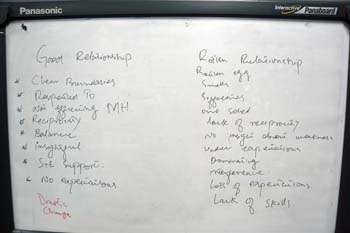 Panasonic
Interactive Panaboard
Good Relationship
* Clear Boundaries
* Respected
* Not affecting MH
* Reciprocity
* Balance
* Insightful
* Support
* No expectations
Drastic
Change
Rotten Relationship
Rotten egg
Smells
Suffocates
One sided
Lack of reciprocity
No insight about weakness
Under expectations
Dominating
negligence
Lots of expectations
Lack of skills.